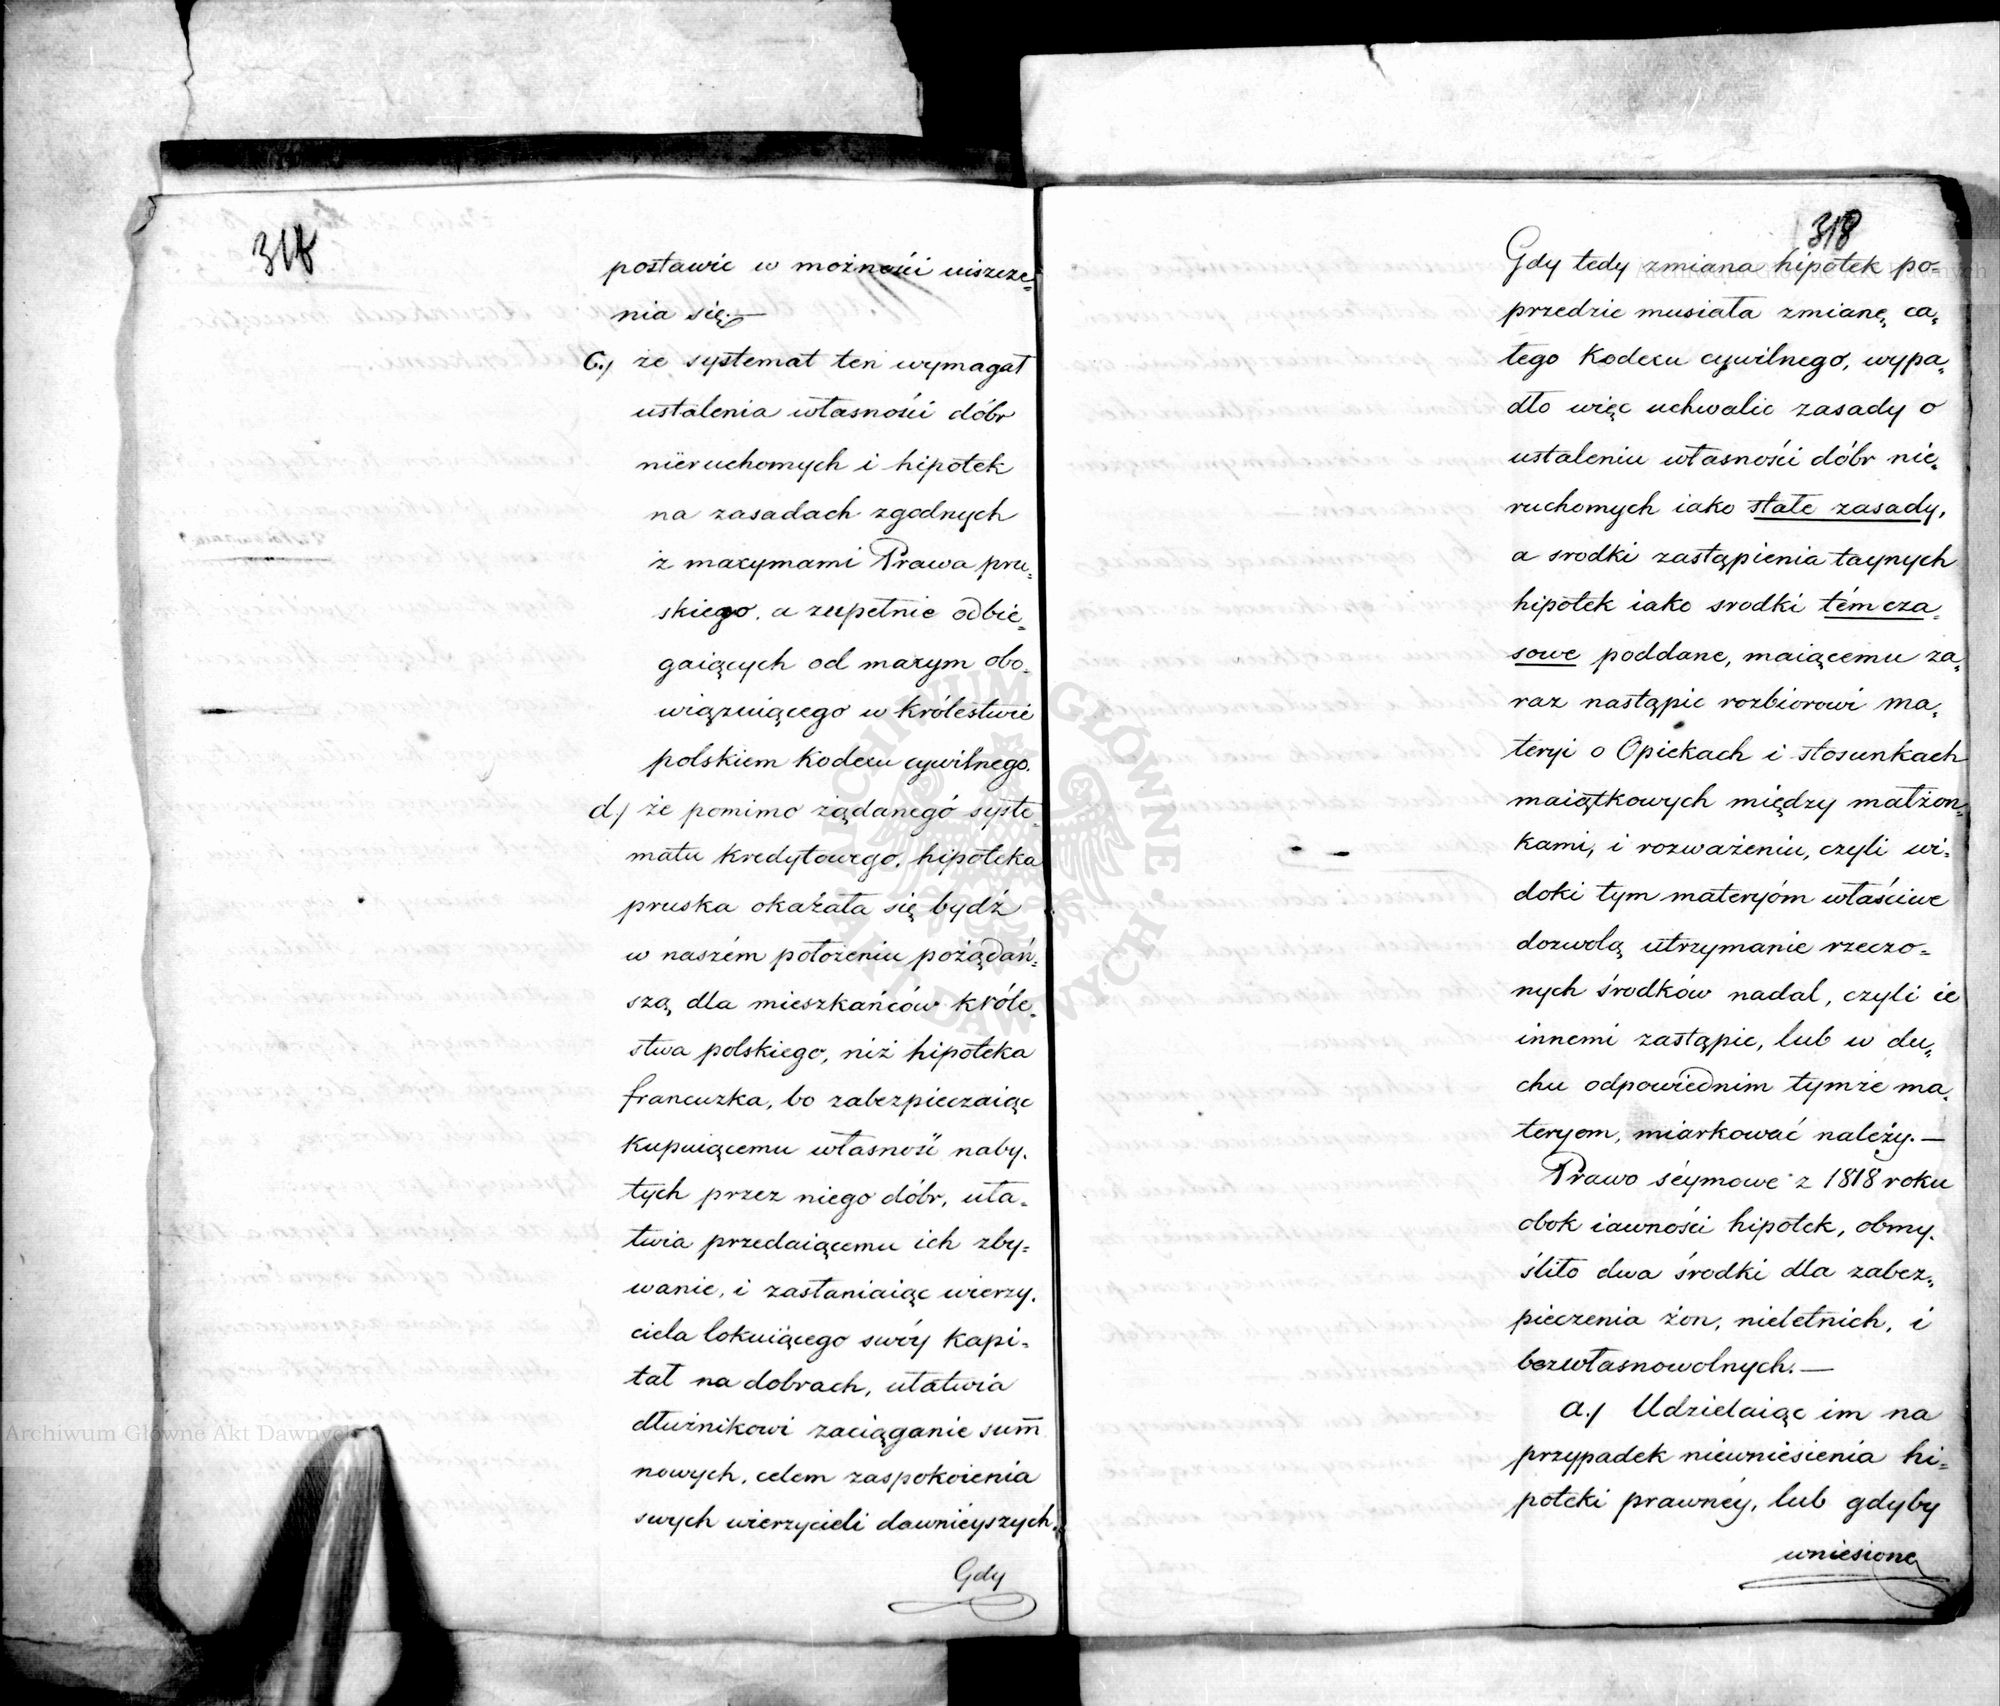 318
postawić w możności uiszcze=
nia się.—
c.) że systemat ten wymagał
ustalenia własności dóbr
nieruchomych i hipotek
na zasadach zgodnych
z maxymami Prawa pru=
skiego, a zupełnie odbie=
gaiących od maxym obo=
wiązuiącego w Królestwie
polskiem Kodexu cywilnego.
d.) że pomimo żądanego syste=
matu kredytowego, hipoteka
pruska okazała się bydź
w naszém położeniu pożądań=
szą dla mieszkańców Króle=
stwa polskiego, niż hipoteka
francuzka, bo zabezpieczaiąc
kupuiącemu własność naby=
tych przez niego dóbr, uła=
twia przedaiącemu ich zby=
wanie, i zasłaniaiąc wierzy=
ciela lokuiącego swóy kapi=
tał na dobrach, ułatwia
dłużnikowi zaciąganie sum̄
nowych, celem zaspokoienia
swych wierzycieli dawnieyszych.
Gdy
318
Gdy tedy zmiana hipotek po=
przedzic musiała zmianę ca=
łego Kodexu cywilnego, wypa=
dło więc uchwalic zasady o
ustaleniu własności dóbr nie=
ruchomych iako stałe zasady,
a srodki zastąpienia taynych
hipotek iako srodki témcza=
sowe poddane, maiącemu za=
raz nastąpic rozbiorowi ma=
teryi o Opiekach i stosunkach
maiątkowych między małżon=
kami, i rozważeniu, czyli wi=
doki tym materyóm właściwe
dozwolą utrzymanie rzeczo=
nych środków nadal, czyli ie
innemi zastąpic, lub w du=
chu odpowiednim tymże ma=
teryom, miarkować należy.—
Prawo séymowe z 1818 roku
obok iawności hipotek, obmy=
śliło dwa środki dla zabez=
pieczenia żon, nieletnich, i
bezwłasnowolnych.—
a.) Udzielaiąc im na
przypadek niewniesienia hi=
poteki prawnéy, lub gdyby
wniesione
Archiwum Główne Akt Dawnych
Archiwum Główne Akt Dawnych
ARCHIWUM GŁÓWNE AKT DAWNYCH